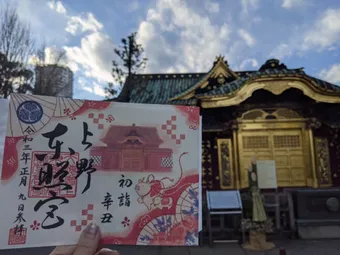 上野
東照宮
初詣
辛丑
令和三年正月九日参拝